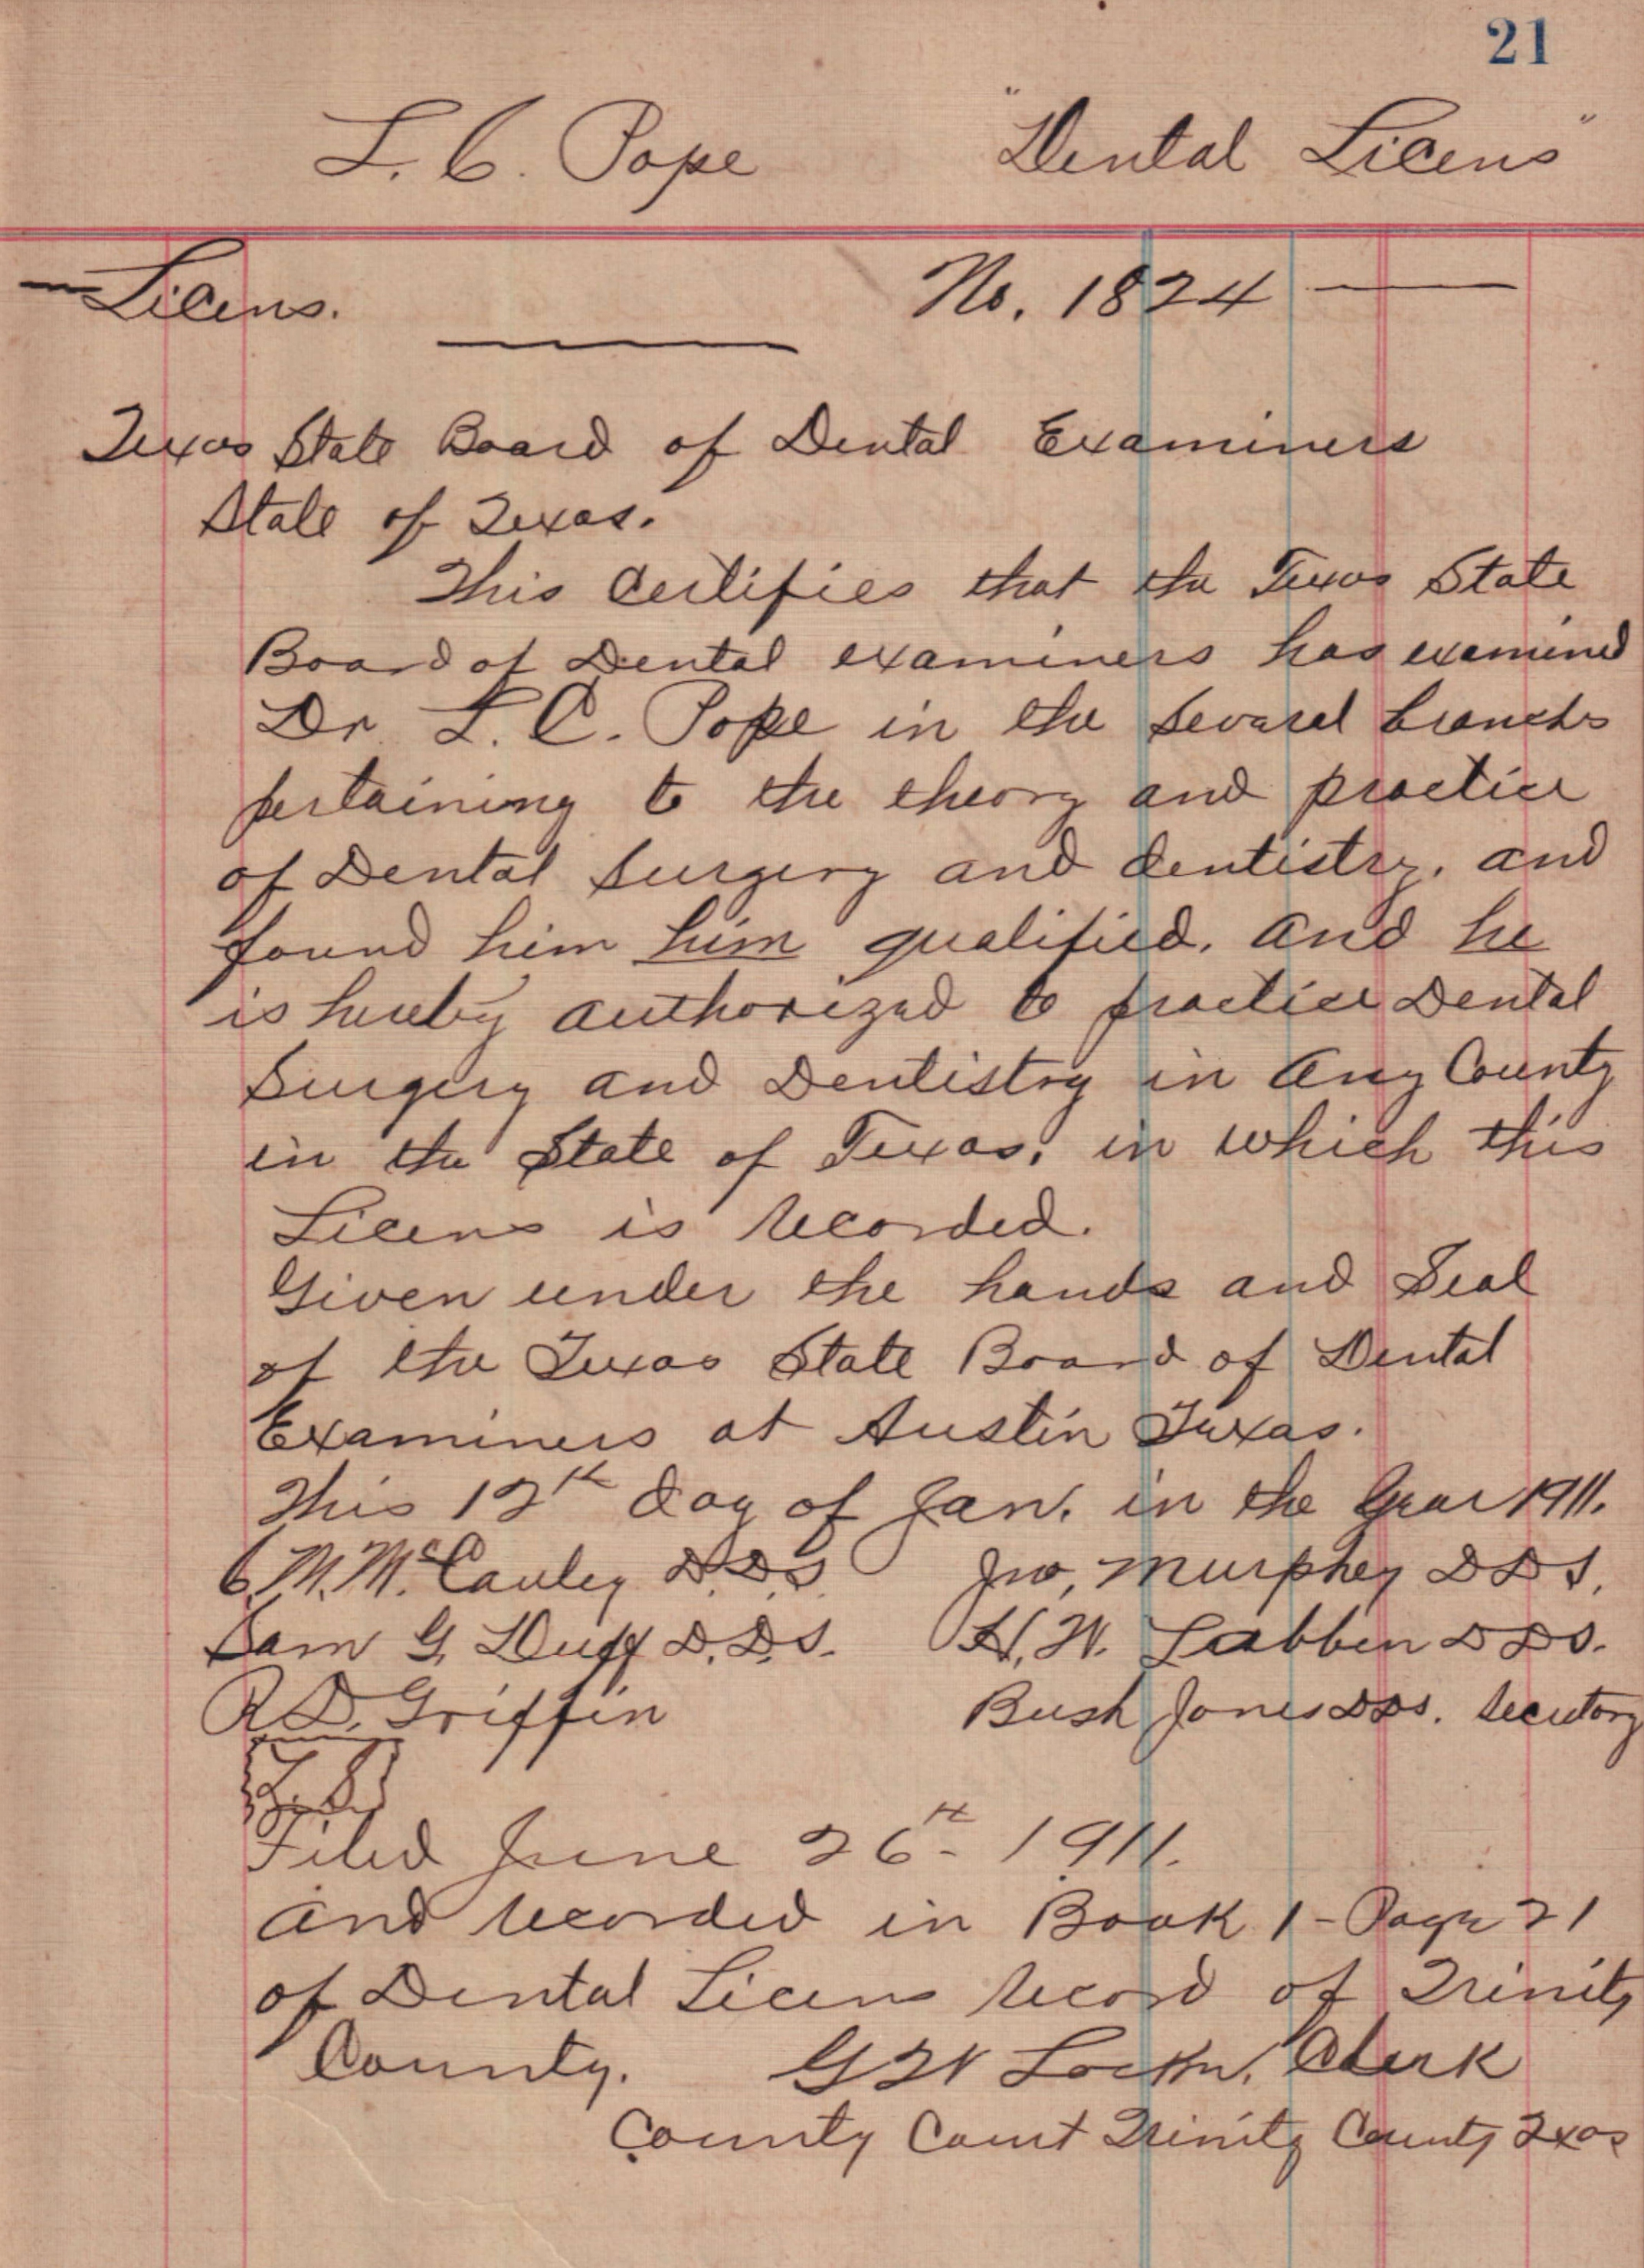 21
L. C. Pope "Dental Licens"
Licens. No. 1824
Texas State Board of Dental Examiners
State of Texas.
This Certifies that the Texas State
Board of Dental examiners has examined
Dr. L. C. Pope in the Several branchs
pertaining to the theory and practice
of Dental Surgery and dentistry, and
found him him qualified, and he
is hereby authorized to practice Dental
Surgery and Dentistry in Any County
in the State of Texas, in which this
Licens is recorded.
Given under the hands and Seal
of the Texas State Board of Dental
Examiners at Austin Texas.
This 12th day of Jan. in the Year 1911.
C. M. McCauley D.D.S. Jno, Murphey D D S.
Sam G. Duff D.D.S. H. W. Labben D D S.
R D. Griffin Bush Jones DDS. Secutory
L. S.
Filed June 26th 1911.
and recorded in Book 1 - Page 21
of Dental Licens record of Trinity
County. G W Clerk
County Court Trinity County Txas